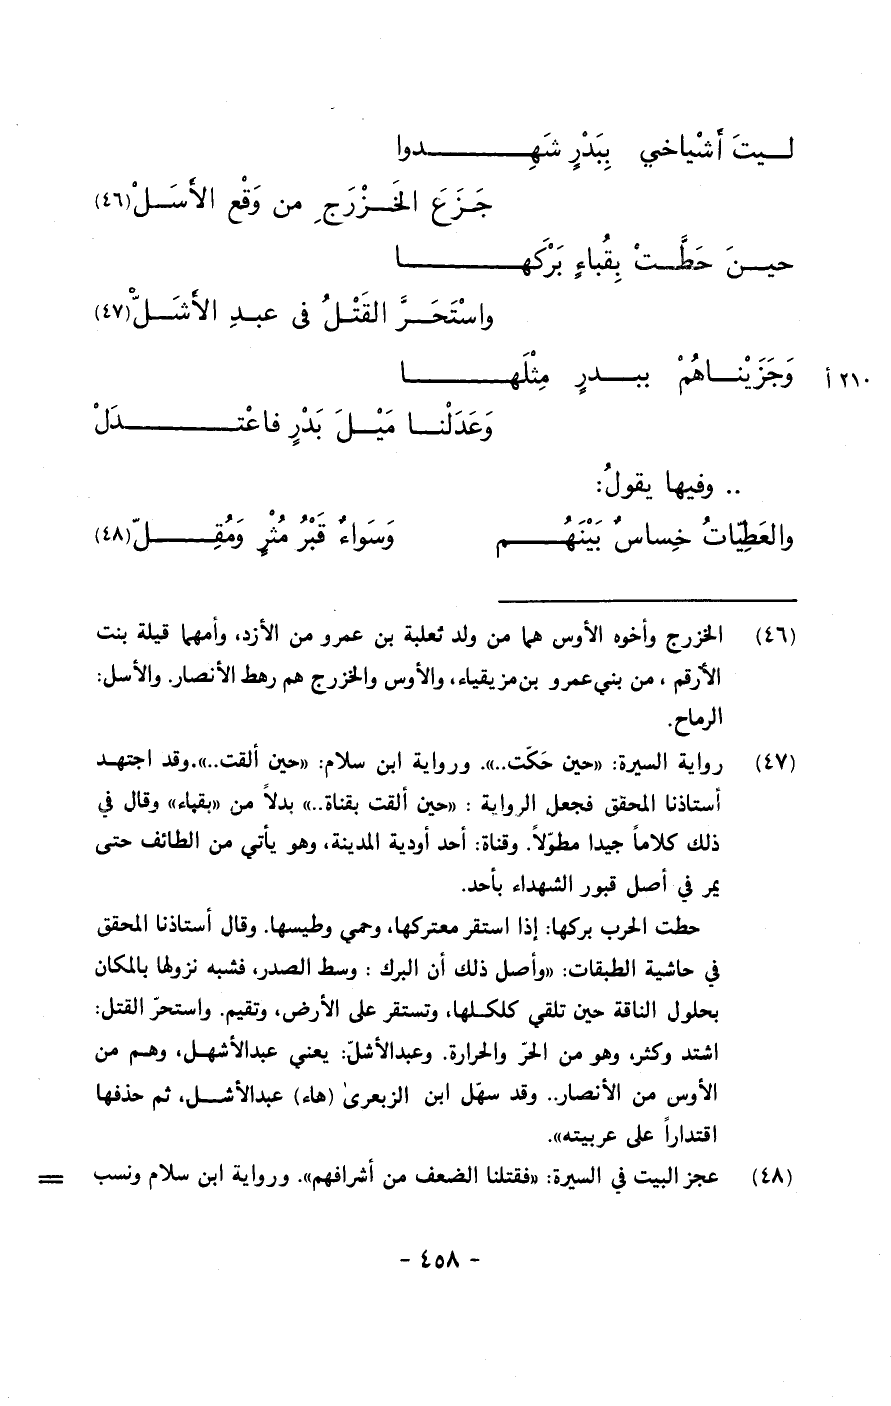 ليتَ أَشْياخي بِبَدْرٍ شَهِدوا
جَزَعَ الخَزْرَجِ من وَقْعِ الأَسَلْ(٤٦)
حينَ حَطَّتْ بِقُباءٍ بَرْكَها
واسْتَحَرَّ القَتْلُ في عبدِ الأَشَلّْ(٤٧)
وَجَزَيْناهُمْ ببدرٍ مِثْلَها
٢١٠ أ
وَعَدَلْنا مَيْلَ بَدْرٍ فاعْتدَلْ
.. وفيها يقولُ:
والعَطِيّاتُ خِساسٌ بَيْنَهُم وَسَواءٌ قَبْرُ مُثْرٍ وَمُقِلّ(٤٨)
(٤٦) الخزرج وأخوه الأوس هما من ولد ثعلبة بن عمرو من الأزد، وأمهما قيلة بنت
الأرقم ، من بني عمرو بن مزيقياء، والأوس والخزرج هم رهط الأنصار. والأسل:
الرماح.
(٤٧) رواية السيرة: «حين حَكَت..». ورواية ابن سلام: «حين ألقت..».وقد اجتهد
أستاذنا المحقق فجعل الرواية : «حين ألقت بقناة..» بدلاً من «بقباء» وقال في
ذلك كلاماً جيدا مطوّلاً. وقناة: أحد أودية المدينة، وهو يأتي من الطائف حتى
يمر في أصل قبور الشهداء بأحد.
حطت الحرب بركها: إذا استقر معتركها، وحمي وطيسها. وقال أستاذنا المحقق
في حاشية الطبقات: «وأصل ذلك أن البرك : وسط الصدر، فشبه نزولها بالمكان
بحلول الناقة حين تلقي كلكلها، وتستقر على الأرض، وتقيم. واستحرّ القتل:
اشتد وكثر، وهو من الحرّ والحرارة. وعبدالأشلّ: يعني عبدالأشهل، وهم من
الأوس من الأنصار.. وقد سهّل ابن الزبعرىٰ (هاء) عبدالأشل، ثم حذفها
اقتداراً على عربيته».
(٤٨) عجز البيت في السيرة: «فقتلنا الضعف من أشرافهم». ورواية ابن سلام ونسب =
- ٤٥٨ -